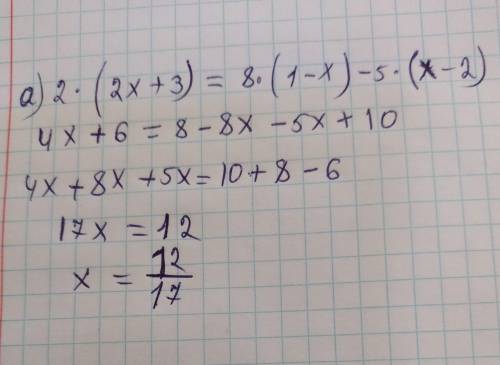 a) 2 · (2x + 3) = 8 · (1 - x) - 5 · (x - 2)
4x + 6 = 8 - 8x - 5x + 10
4x + 8x + 5x = 10 + 8 - 6
17x = 12
x = 12/17